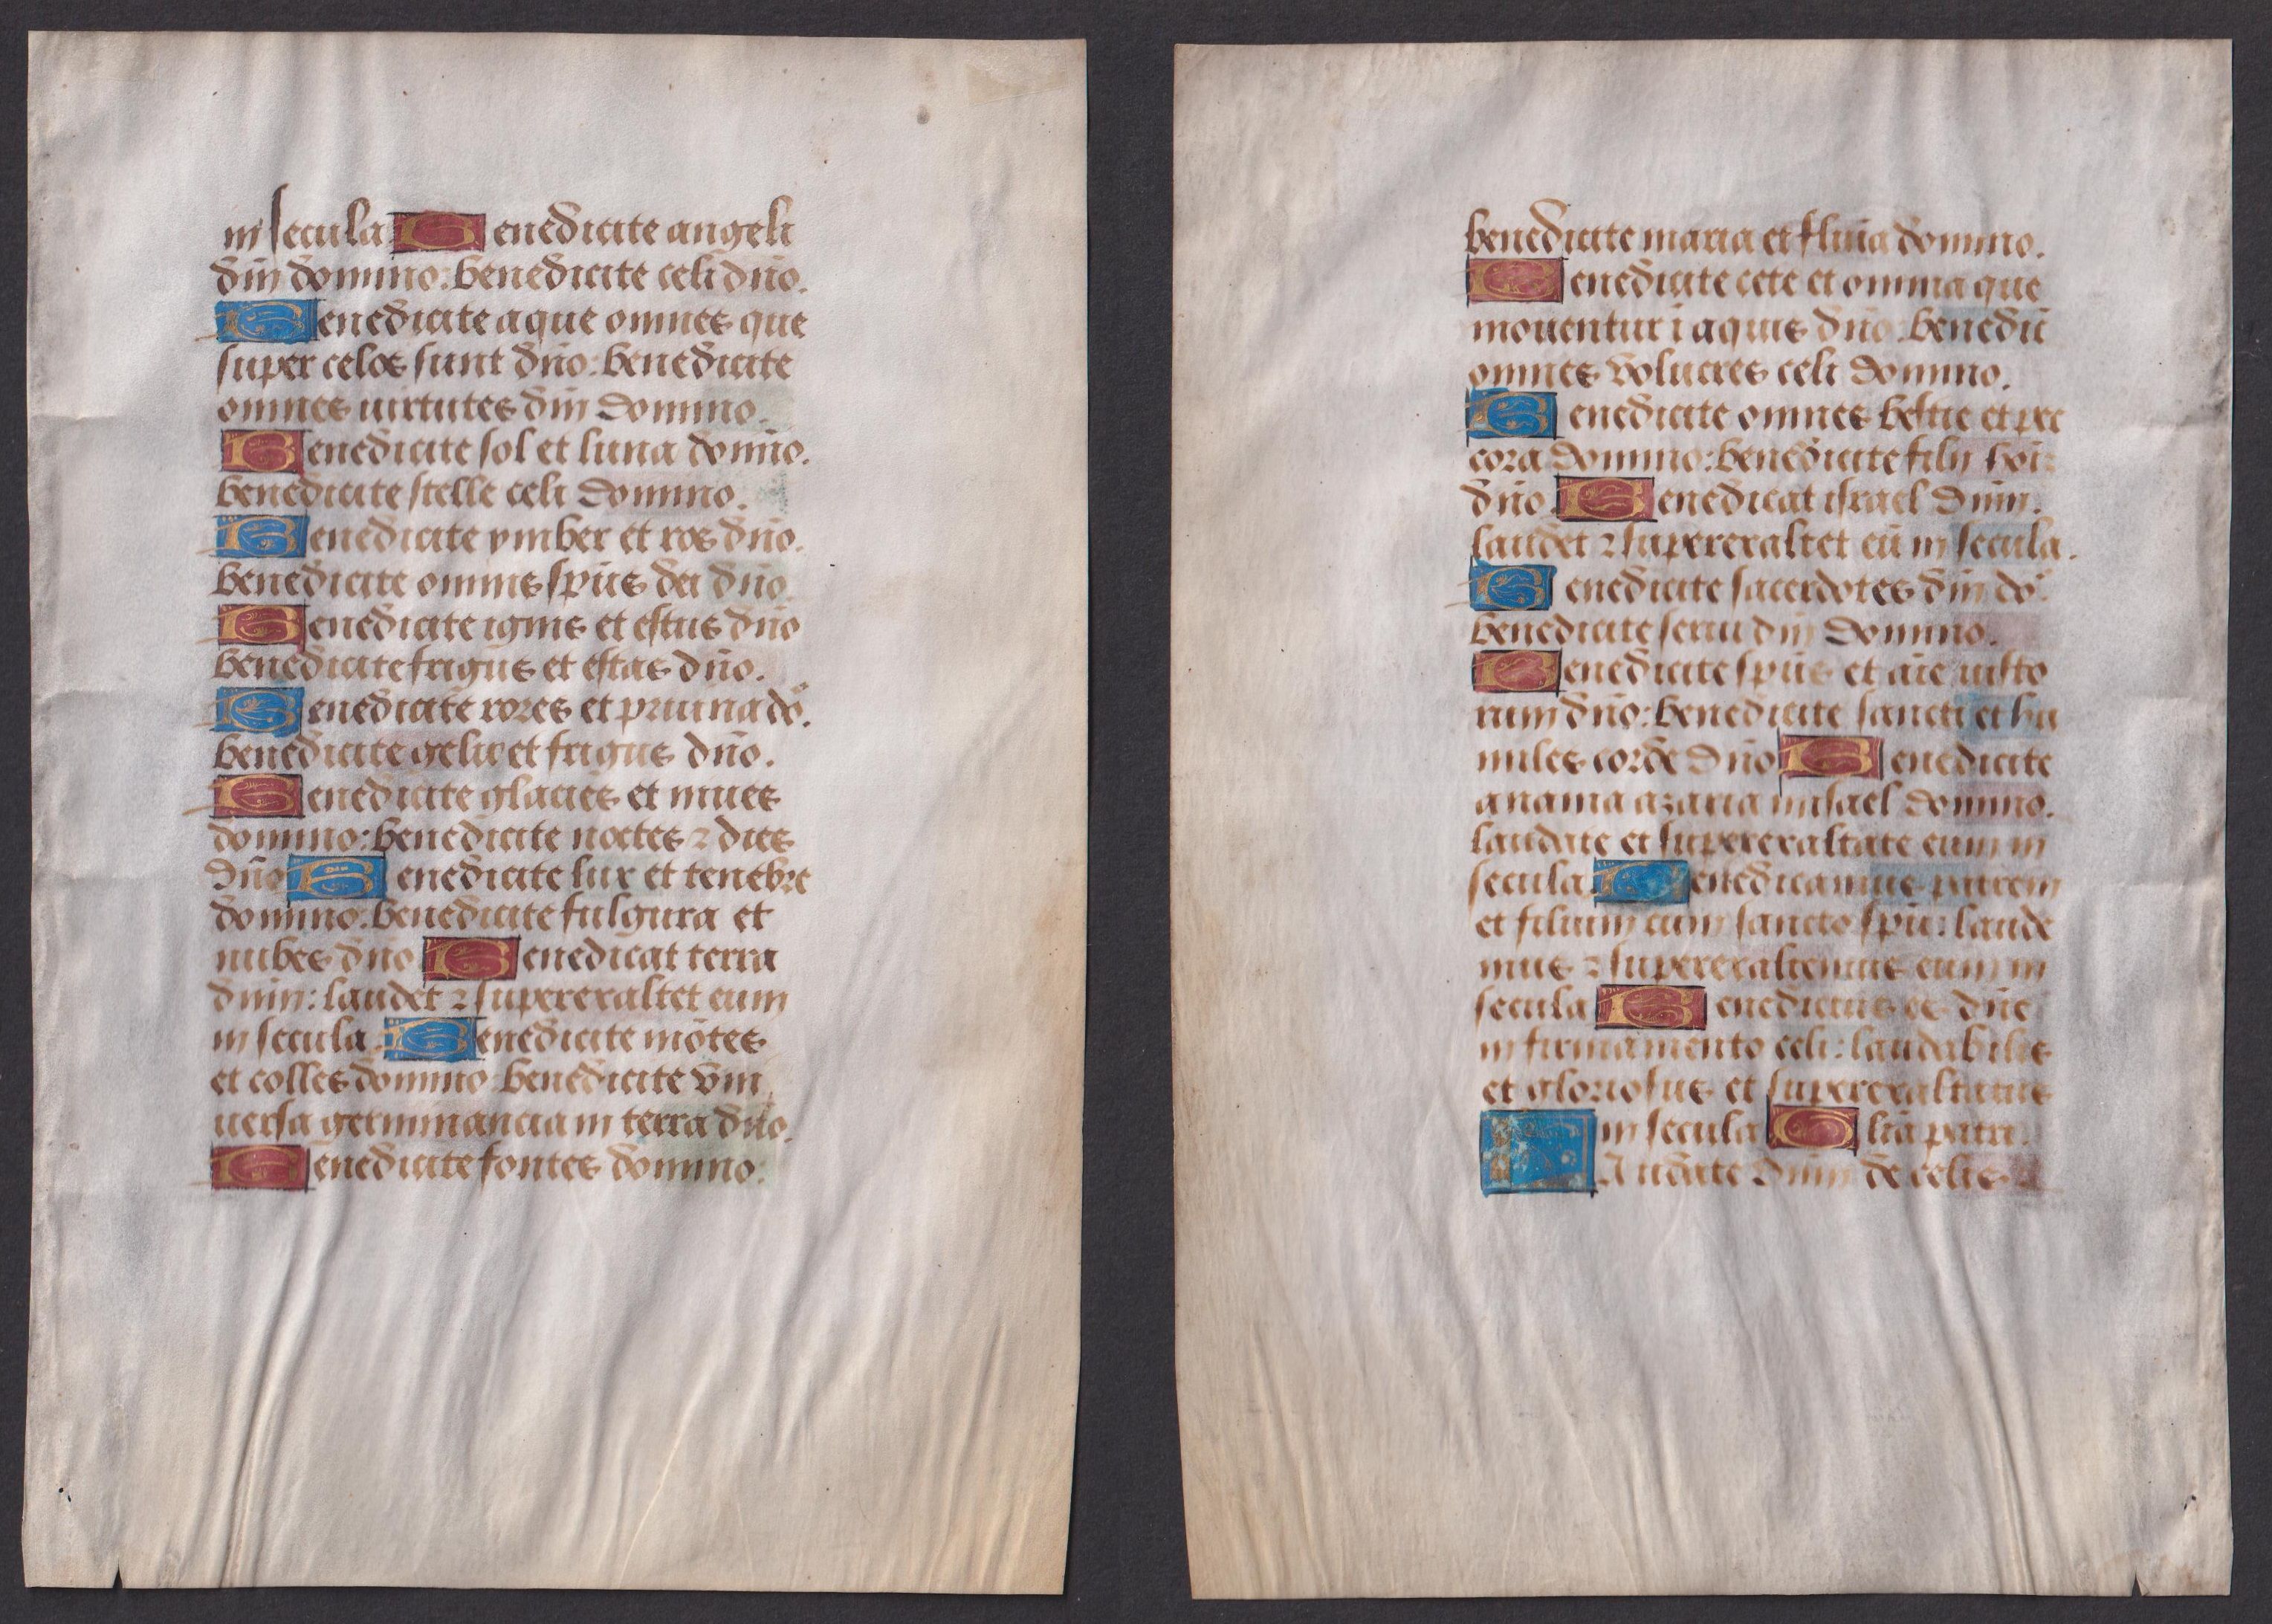 in secula Benedicite angeli
dñi domino: benedicite celi dño.
Benedicite aque omnes que
super celos sunt dño: benedicite
omnes uirtutes dñi domino.
Benedicite sol et luna domĩo.
benedicite stelle celi domino.
Benedicite ymber et ros dño.
benedicite omnes spũs dei dño
Benedicite ignis et estus dño
benedicite frigus et estas dño.
Benedicite rores et pruina dõ.
benedicite gelu et frigus dño.
Benedicite glacies et niues
domino: benedicite noctes ⁊ dies
dño Benedicite lux et tenebre
domino: benedicite fulgura et
nubes dño Benedicat terra
dñm: laudet ⁊ superexaltet eum
in secula. Benedicite mõtes
et colles domino: benedicite vni
uersa germinancia in terra dño.
Benedicite fontes domino:
benedicite maria et fluuia domino.
Benedicite cete et omnia que
mouentur ĩ aquis dño: benedic̃
omnes volucres celi domino.
Benedicite omnes bestie et pec
cora domino: benedicite filij hoĩ
dño. Benedicat israel dñm.
laudet ⁊ superexaltet eũ in secula.
Benedicite sacerdotes dñi dõ.
benedicite serui dñi domino.
Benedicite spũs et aĩe iusto
rum dño: benedicite sancti et hu
miles corde dño Benedicite
anania azaria misael domino.
laudate et superexaltate eum in
secula. Benedicamus patrem
et filium cum sancto spũ: laude
mus ⁊ superexaltemus eum in
secula Benedictus es dñe
in firmamento celi: laudabilis
et gloriosus et superexaltatus
in secula Glĩa patri.
Laudate dñm de celis